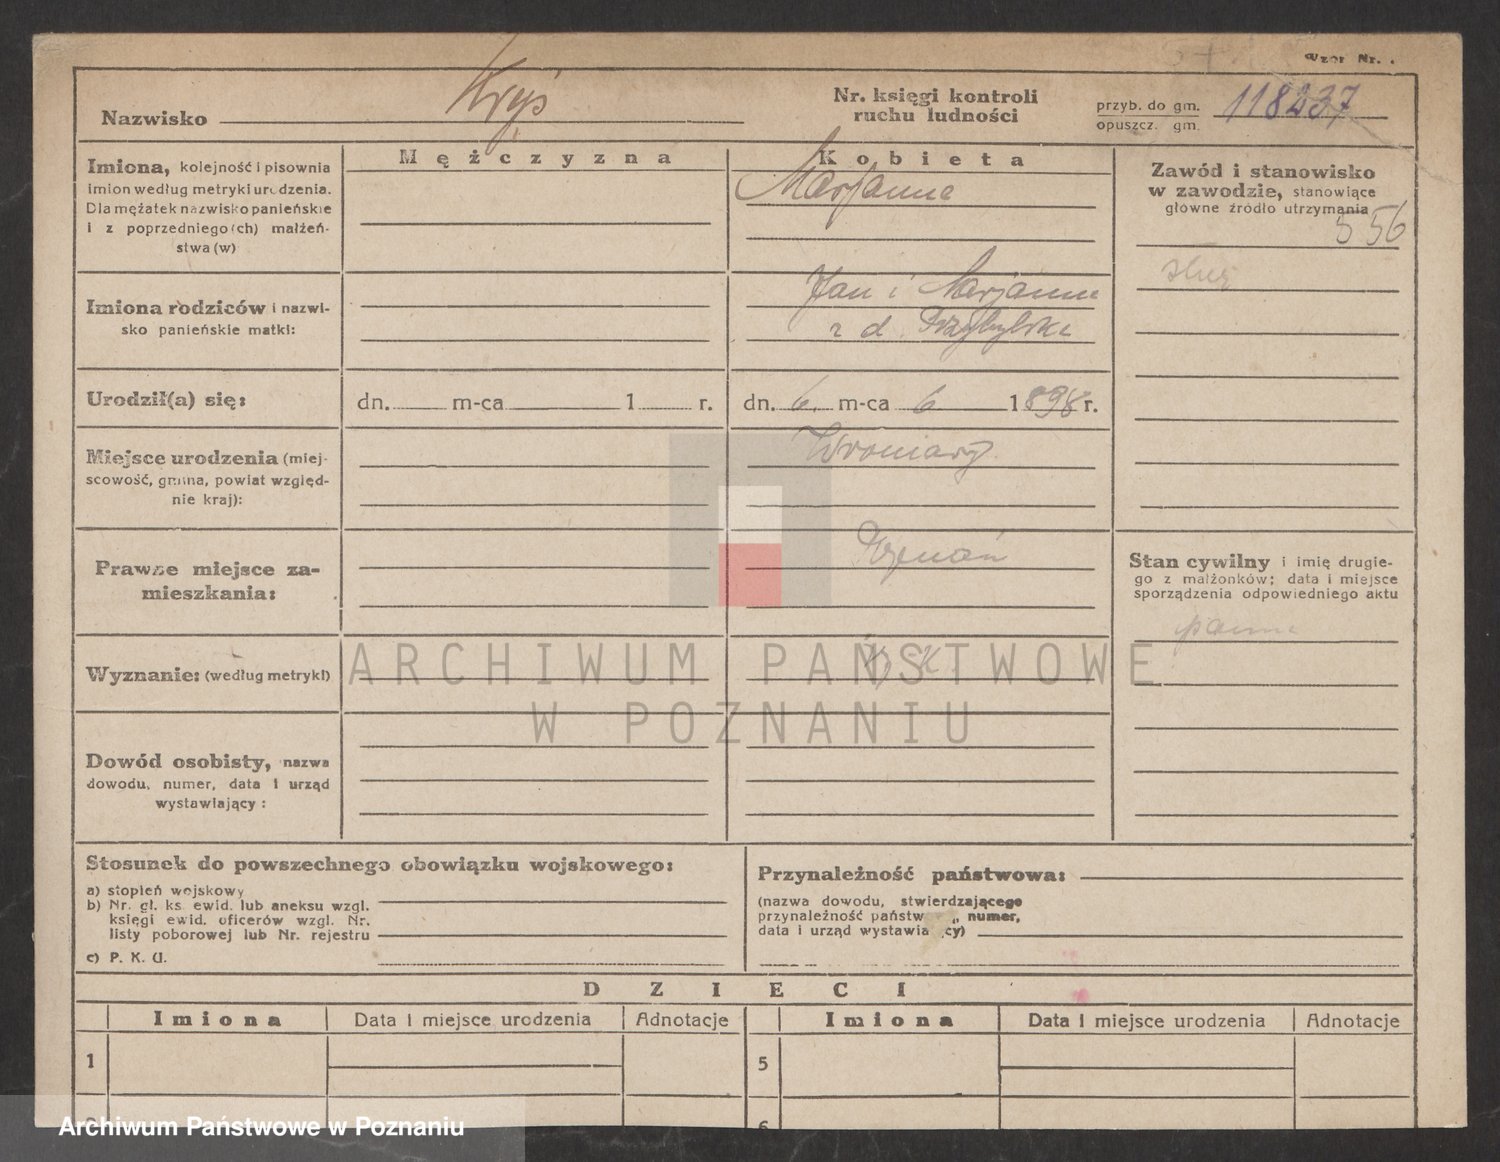 Wzór Nr.
Nazwisko Kryś
Nr. księgi kontroli
ruchu ludności
przyb. do gm.
opuszcz. gm.
118237
Imiona, kolejność i pisownia
imion według metryki urodzenia.
Dla mężatek nazwisko panieńskie
i z poprzedniego(ch) małżeń-
stwa (w)
Mężczyzna
Kobieta
Marjanna
Zawód i stanowisko
w zawodzie, stanowiące
główne źródło utrzymania
556
służ
Imiona rodziców i nazwi-
sko panieńskie matki:
Jan i Marjanna
z d. Przybylska
Urodził(a) się:
dn. m-ca 1 r.
dn. 6. m-ca 6 1898 r.
Miejsce urodzenia (miej-
scowość, gmina, powiat względ-
nie kraj):
Wroniawy
Prawne miejsce za-
mieszkania:
Poznań
Stan cywilny i imię drugie-
go z małżonków; data i miejsce
sporządzenia odpowiedniego aktu
panna
Wyznanie: (według metryki)
ARCHIWUM PAŃSTWOWE
W POZNANIU
Dowód osobisty, nazwa
dowodu, numer, data i urząd
wystawiający :
Stosunek do powszechnego obowiązku wojskowego:
a) stopień wojskowy
b) Nr. gł. ks. ewid. lub aneksu wzgl.
księgi ewid. oficerów wzgl. Nr.
listy poborowej lub Nr. rejestru
c) P. K. U.
Przynależność państwowa:
(nazwa dowodu, stwierdzającego
przynależność państw „ numer,
data i urząd wystawia cy)
DZIECI
Imiona Data i miejsce urodzenia Adnotacje
Imiona Data i miejsce urodzenia Adnotacje
1
5
6
Archiwum Państwowe w Poznaniu